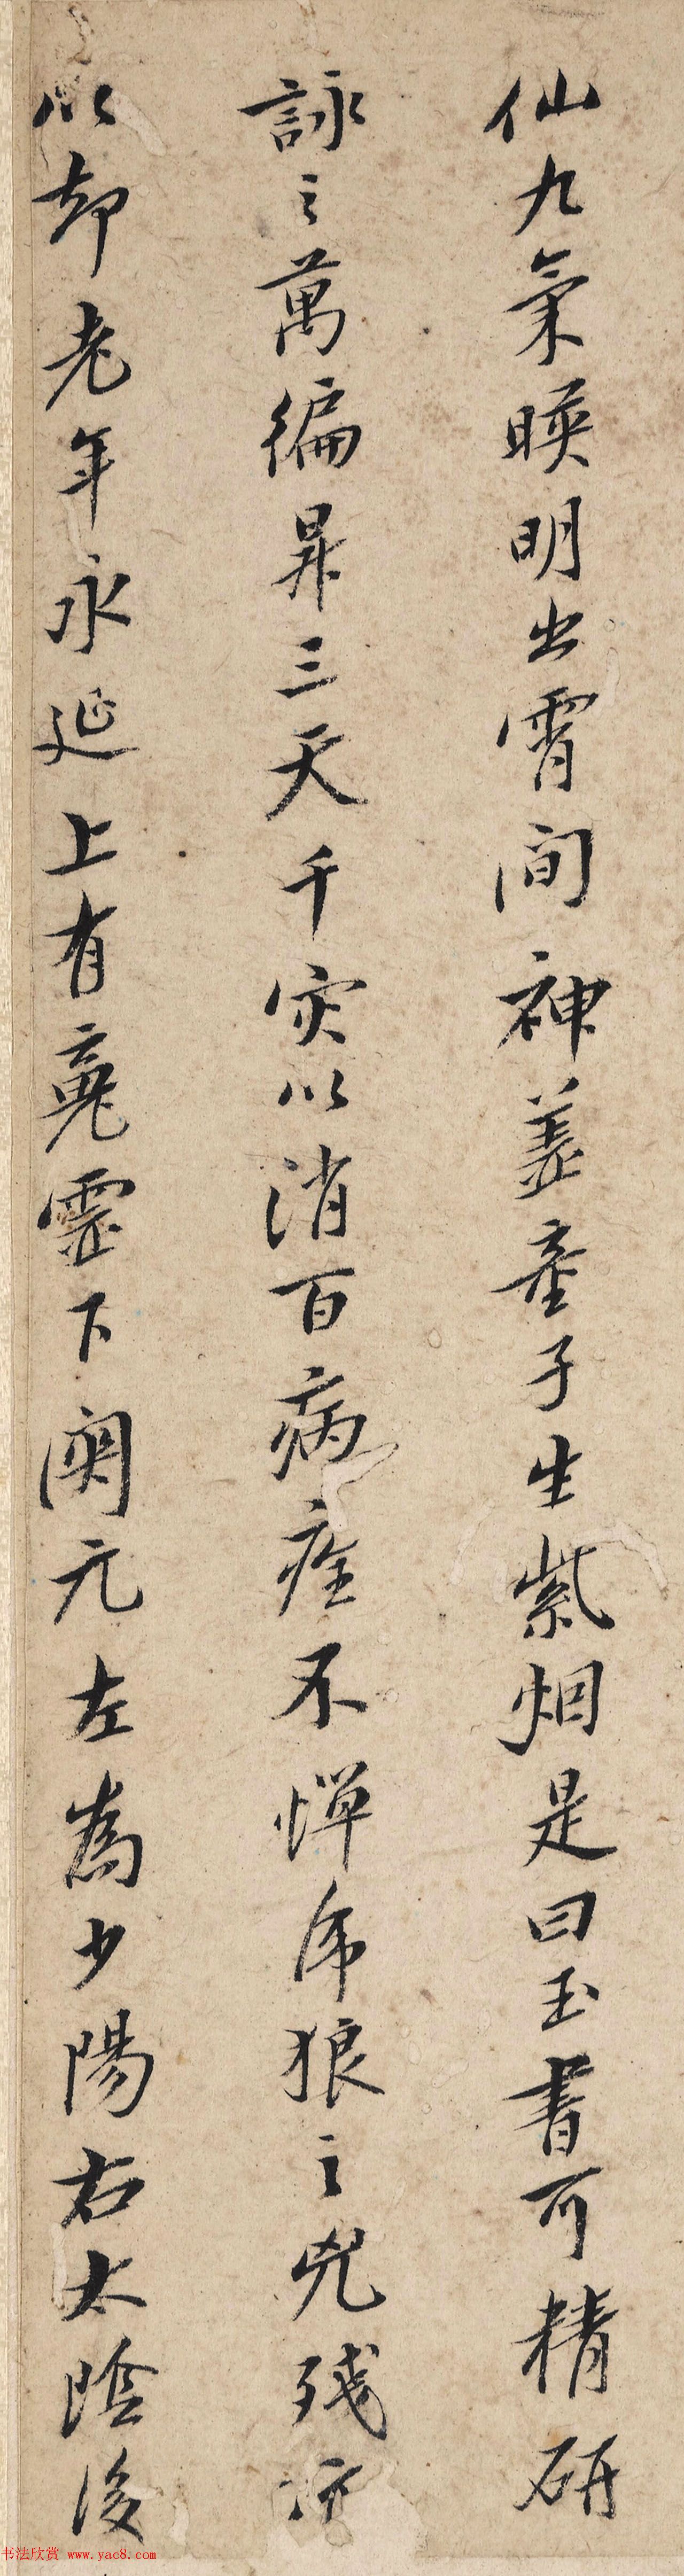 仙九氣暎明出霄間神葢童子生紫烟是曰玉書可精研
詠之萬徧昇三天千灾以消百病痊不憚虎狼之兇残亦
以却老年永延上有䰟霊下関元左為少陽右太陰後
书法欣赏 www.yac8.com